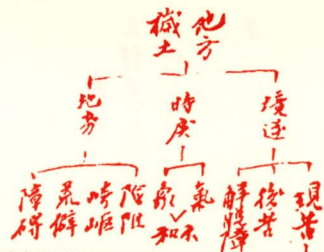 他方
穢土
境逆
時戾
地劣
現苦
後苦
氣
象
不和
險阻
崎嶇
荒僻
障礙